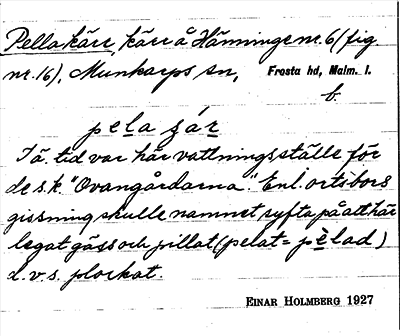 Pella kärr, kärr å Hänninge nr. 6 (fig
nr. 16), Munkarps sn, Frosta hd, Malm. l.
f.
pela ʒár
I ä. tid var här vattningsställe för
de s.k. "Ovangårdarna". Enl. ortsbors
gissning skulle namnet syfta på att här
legat gäss och pillat (pelat = pèlad)
d.v.s. plockat.
EINAR HOLMBERG 1927